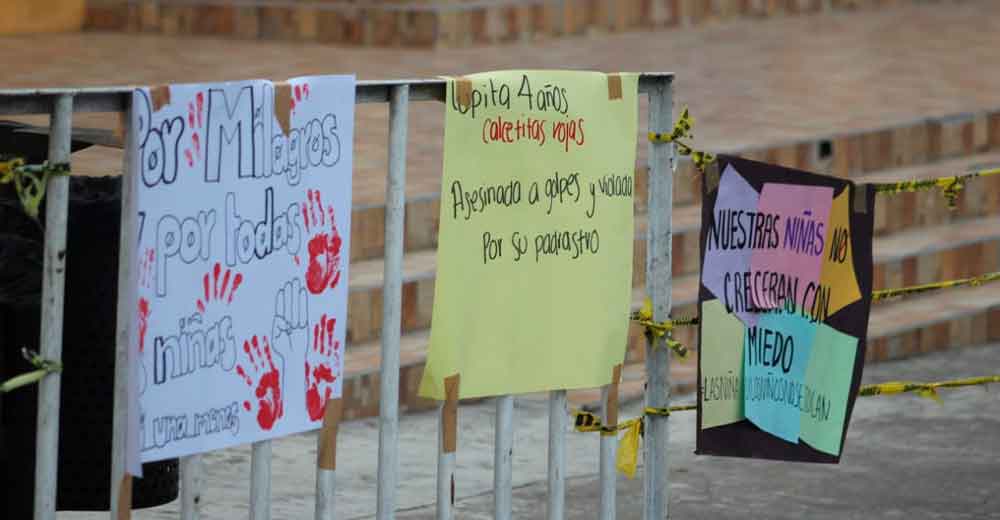 Por Milagros
y por todas
niñas
ni una menos
Lupita 4 años
calcetitas rojas
Asesinada a golpes y violada
Por su padrastro
NUESTRAS NIÑAS NO
CRECERAN CON
MIEDO